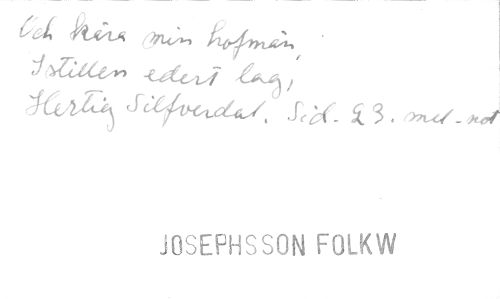 Och kära min hofmän,
I stillen edert lag,
Hertig Silfverdal. Sid. 23. mel-not
JOSEPHSSON FOLKW